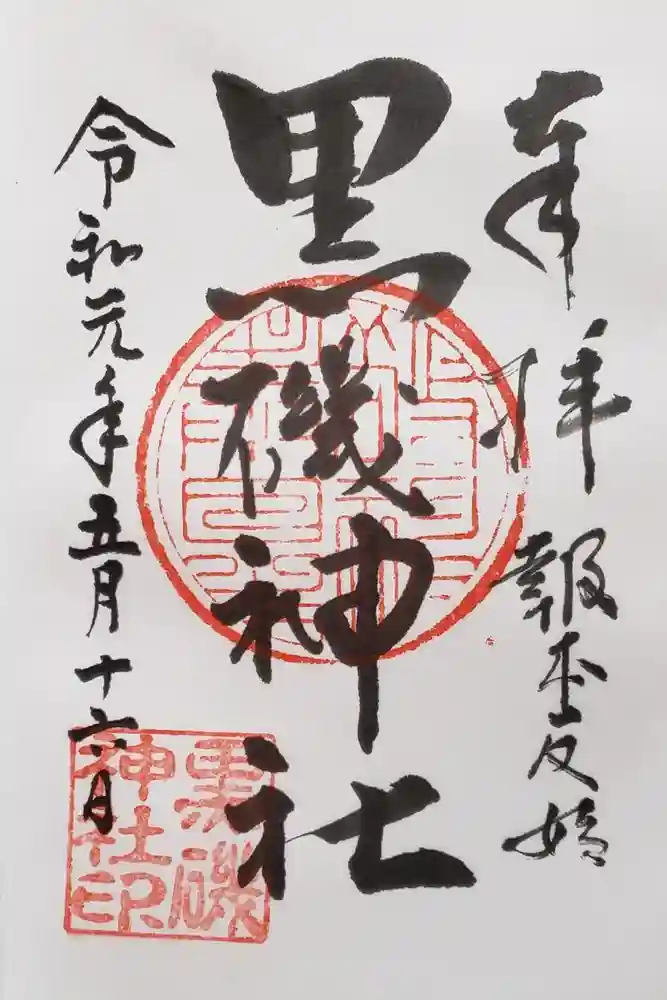 奉拝
報本反始
黒磯神社
令和元年五月十六日
黒磯
神社印